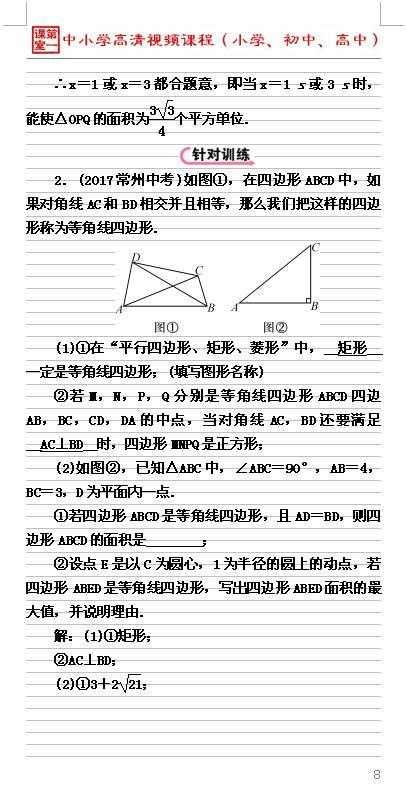 课第
堂一
中小学高清视频课程（小学、初中、高中）
∴x＝1 或 x＝3 都合题意，即当 x＝1 s 或 3 s 时，
能使△OPQ 的面积为3√3/4个平方单位．
针对训练
2．(2017 常州中考)如图①，在四边形 ABCD 中，如
果对角线 AC 和 BD 相交并且相等，那么我们把这样的四边
形称为等角线四边形．
D
C
A
B
图①
C
A
B
图②
(1)①在“平行四边形、矩形、菱形”中，__矩形__
一定是等角线四边形；(填写图形名称)
②若 M，N，P，Q 分别是等角线四边形 ABCD 四边
AB，BC，CD，DA 的中点，当对角线 AC，BD 还要满足
__AC⊥BD__时，四边形 MNPQ 是正方形；
(2)如图②，已知△ABC 中，∠ABC＝90°，AB＝4，
BC＝3，D 为平面内一点．
①若四边形 ABCD 是等角线四边形，且 AD＝BD，则四
边形 ABCD 的面积是________；
②设点 E 是以 C 为圆心，1 为半径的圆上的动点，若
四边形 ABED 是等角线四边形，写出四边形 ABED 面积的最
大值，并说明理由．
解：(1)①矩形；
②AC⊥BD；
(2)①3＋2√21；
8